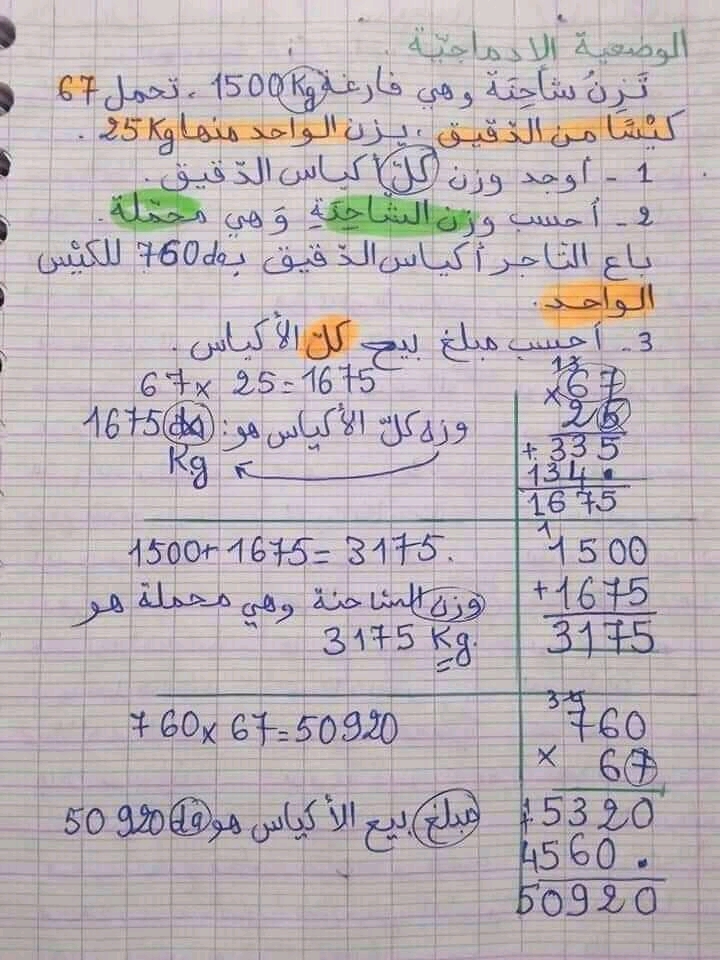 الوضعية الإدماجيّة
تَزِنُ شاحِنَة وهي فارغة 1500Kg. تحمل 67
كيْسًا من الدّقيق، يزن الواحد منها 25Kg.
1 - أوجد وزن كلّ أكياس الدّقيق.
2 - أحسب وزن الشّاحِنَةِ وَ هي محمّلة.
باع التاجر أكياس الدّقيق بـ 760da للكيْس
الواحد.
3 - أحسب مبلغ بيع كلّ الأكياس.
67 x 25 = 1675
وزن كلّ الأكياس هو: 1675
Kg
67
x 25
+ 335
134.
1675
1500 + 1675 = 3175.
وزن الشاحنة وهي محملة هو
3175 Kg.
1
1500
+ 1675
3175
760 x 67 = 50920
مبلغ بيع الأكياس هو 50920 da
760
x 67
5320
4560.
50920